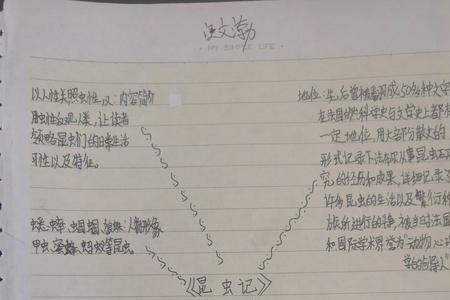 MY SIMPLE LIFE
以人性关照虫性,及:内容简介
虫性反观人类,让读者
领略昆虫们的日常生活
习性以及特征。
人物形象
甲虫、蜜蜂、
等昆虫
地位:先后曾被翻成50多种文字
在法国的科学史与文学史上都有
一定地位,用大部分散文的
形式记录下法布尔从事昆虫研
究的经历和成果,详细记录了
许多昆虫的生活以及繁衍种
族所进行的
被当时法国
和国际学术界誉为"动物心理
学的指导人"
《昆虫记》